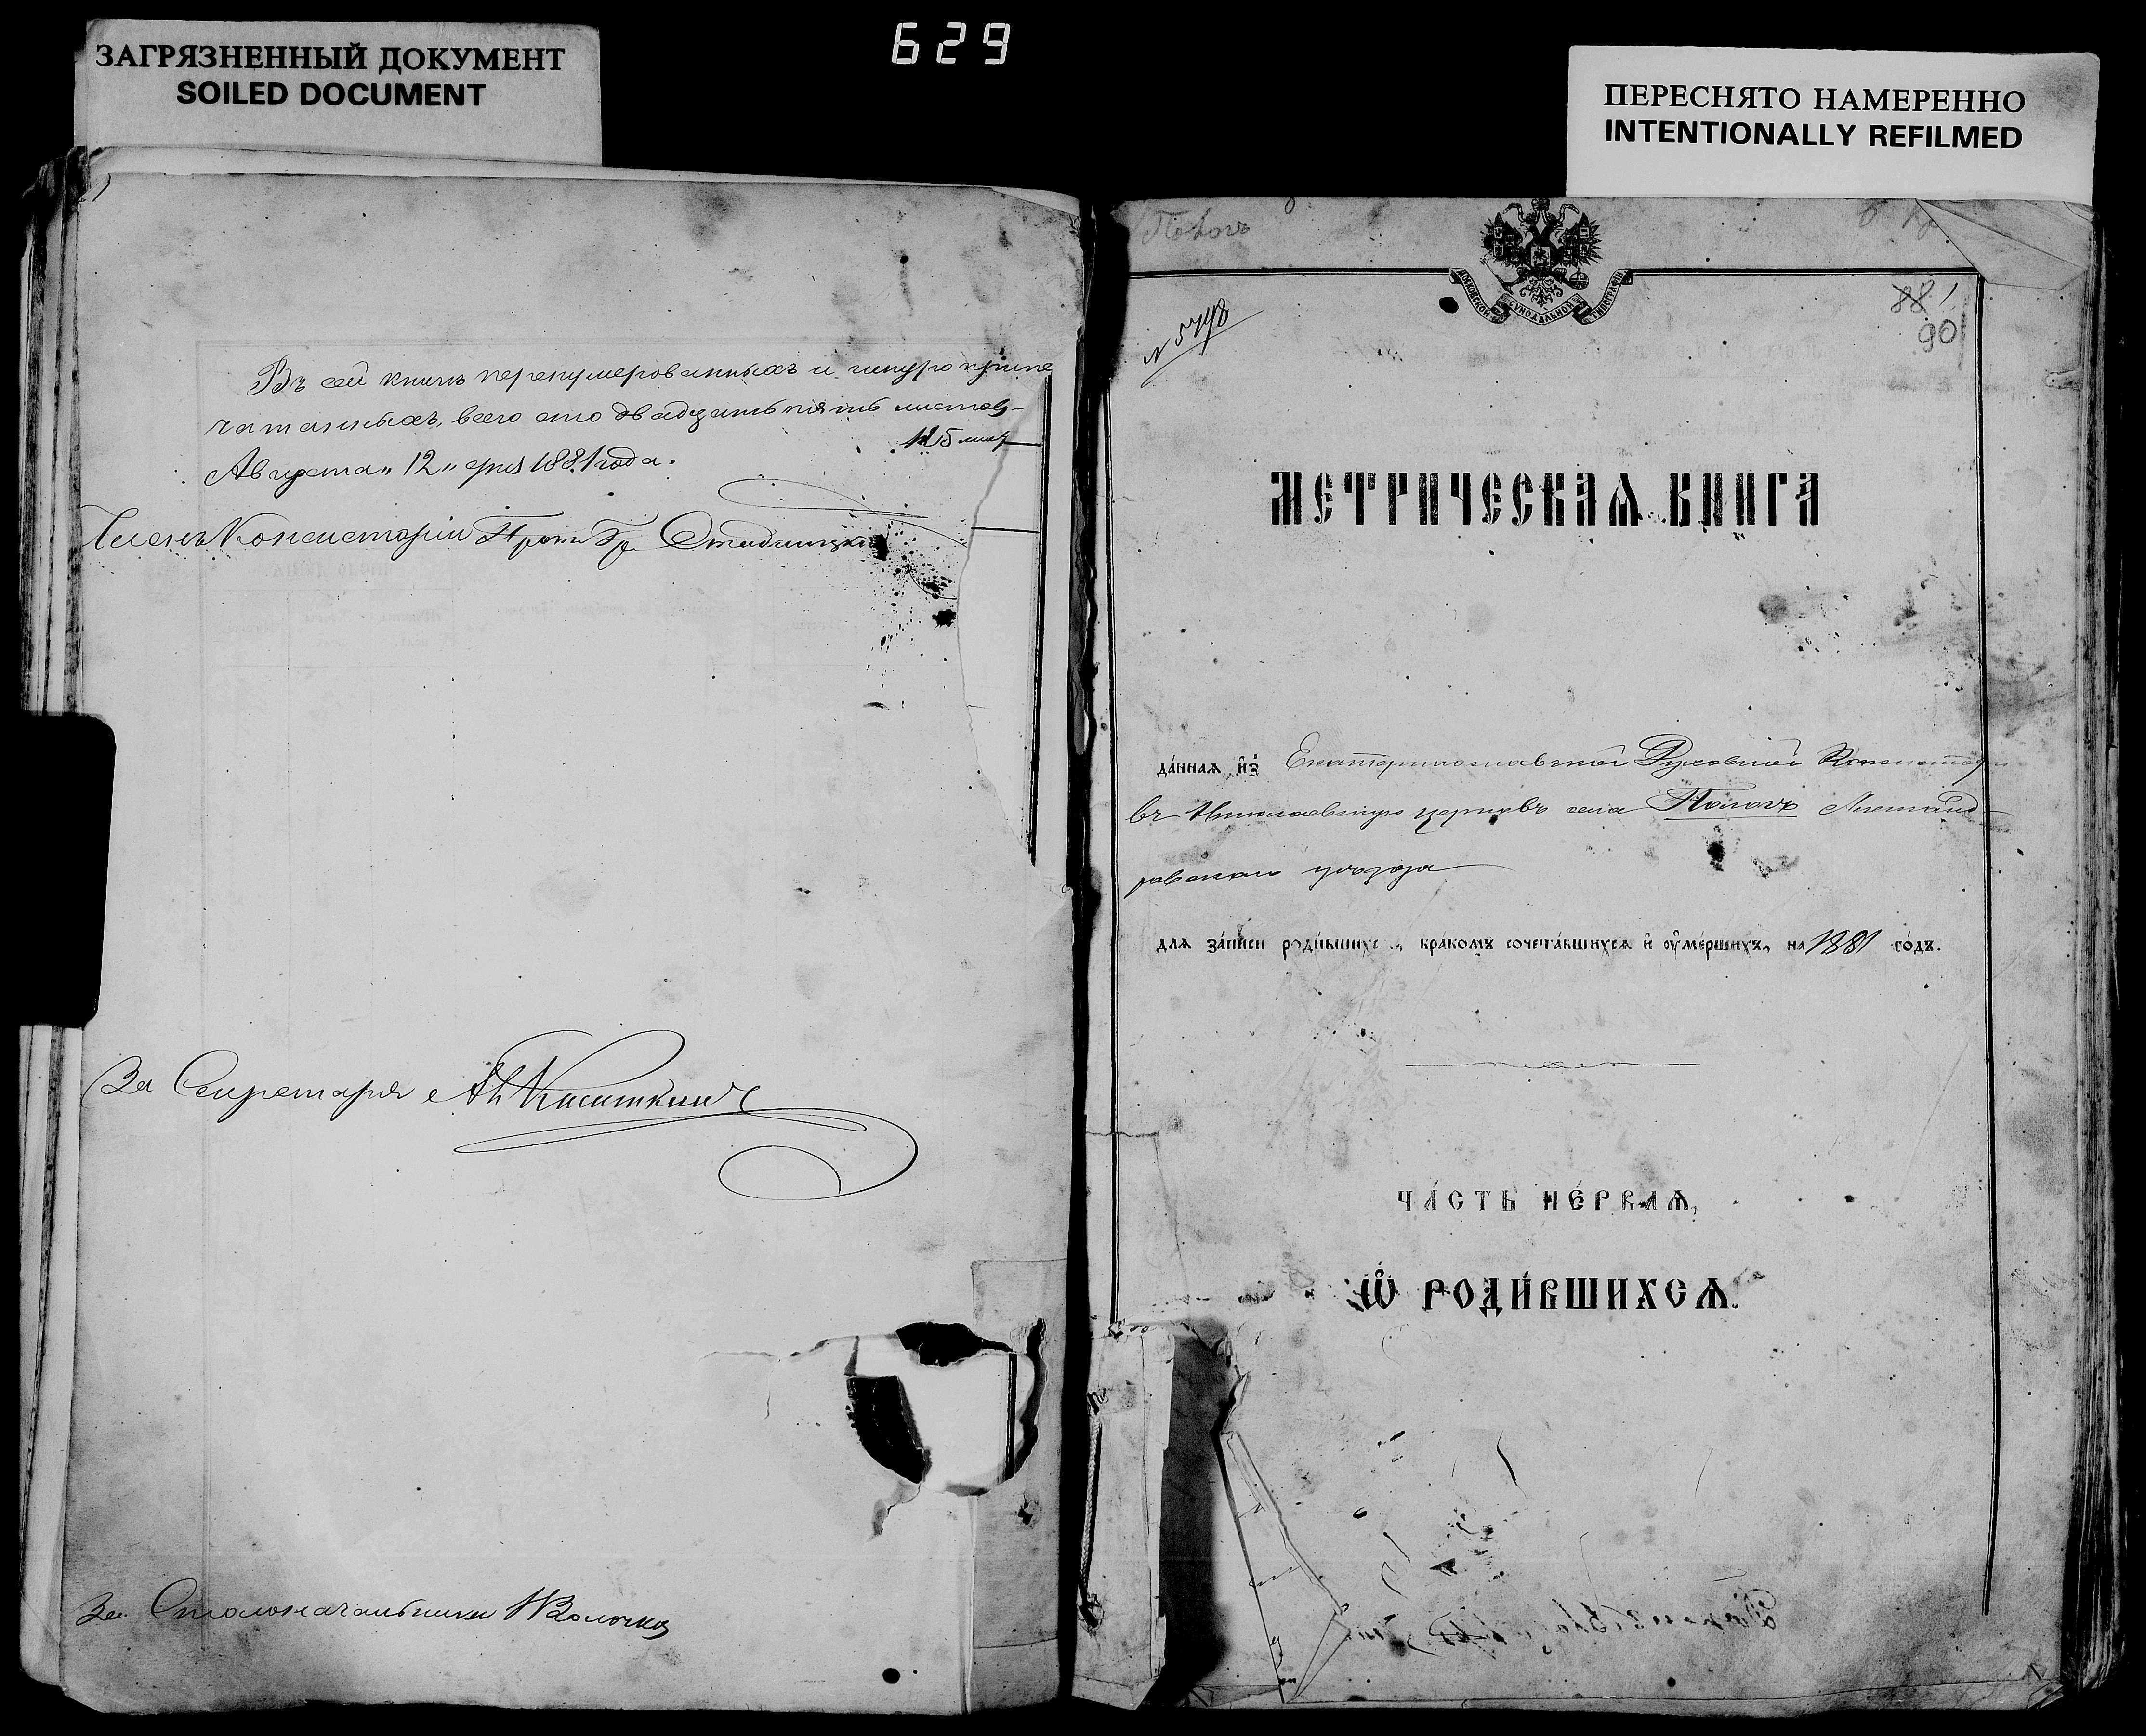 ЗАГРЯЗНЕННЫЙ ДОКУМЕНТ
SOILED DOCUMENT
629
ПЕРЕСНЯТО НАМЕРЕННО
INTENTIONALLY REFILMED
Въ сей книгѣ перенумерованныхъ и шнуро припе
чатанныхъ, всего сто двадцать пять листовъ
125
Августа „12„ дня 1881 года.
Членъ Консисторіи Прот. Гр.
За Секретаря
За Столоначальника
Пологъ
МОСКОВСКОЙ СѴНОДАЛЬНОЙ ТИПОГРАФІИ
88
90
N 5748
МЕТРИЧЕСКАѦ КНИГА
да́ннаѧ и҆з̾ Екатеринославской Духовной Консистор
въ Николаевскую церковь села Пологъ Александ-
ровскаго уѣзда
для за́писи роди́вшихс , бра́комъ сочета́вшихсѧ и҆ ᲂу҆ме́ршихъ, на 1881 го́дъ.
ЧА́СТЬ ПЕ́РВАѦ,
Ѡ҆ РОДИ́ВШИХСѦ.